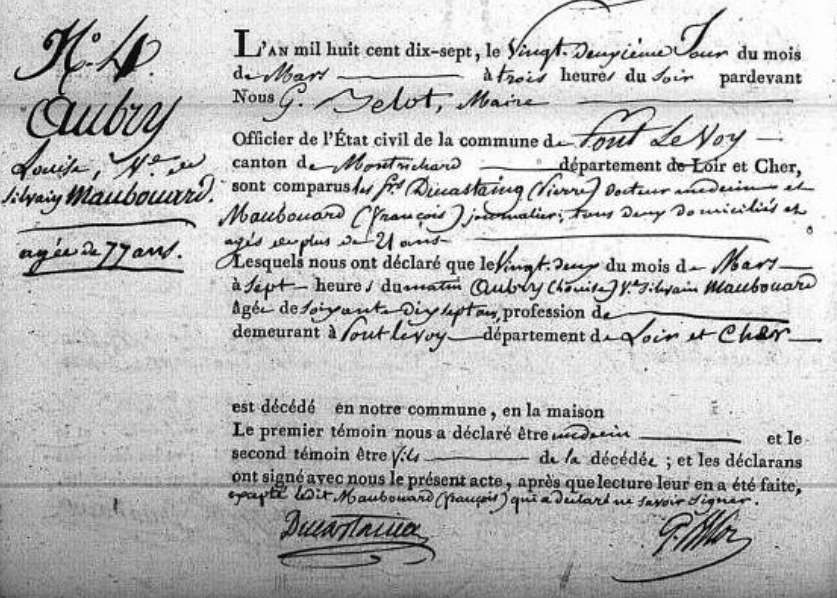 N.º 4.
Aubry
Louise, V.e de
Silvain Maubouard.
agée de 77 ans.
L'AN mil huit cent dix-sept, le Vingt-deuxième Jour du mois
de Mars à trois heures du Soir pardevant
Nous G. Belot, Maire
Officier de l'État civil de la commune de Pont Le Voy
canton de Montrichard département de Loir et Cher,
sont comparus les Srs Ducastaing (Pierre) Docteur medecin et
Maubouard (françois) journalier, tous deux domiciliés et
agés de plus de 21 ans
Lesquels nous ont déclaré que le Vingt-deux du mois de Mars
à Sept heures du matin Aubry (Louise) V.e Silvain Maubouard
Agée de Soixante dix sept ans, profession de
demeurant à Pontlevoy département de Loir et Cher
est décédé en notre commune, en la maison
Le premier témoin nous a déclaré être medecin et le
second témoin être fils de la décédée ; et les déclarans
ont signé avec nous le présent acte, après que lecture leur en a été faite,
excepté ledit Maubouard (françois) qui a déclaré ne savoir Signer.
Ducastaing
G. Belot